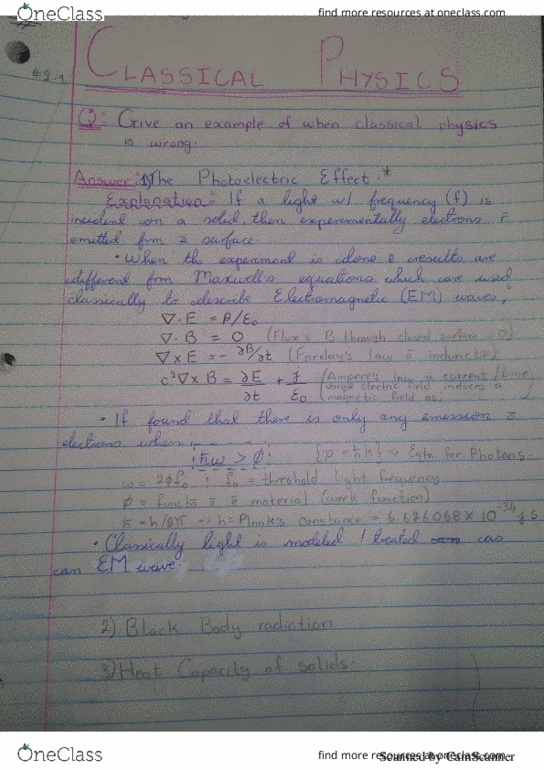 OneClass
find more resources at oneclass.com
42.1
CLASSICAL PHYSICS
Q: Give an example of when classical physics
is wrong.
Answer: 1) The Photoelectric Effect.*
Explanation: If a light w/ frequency (f) is
incident on a solid, then experimentally electrons r
emitted frm surface.
• When the experiment is done results are
different frm Maxwell's equations which are used
classically to describe Electromagnetic (EM) waves,
∇· E = ρ/ε₀
∇· B = 0 (Flux B through closed surface = 0)
∇ x E = - ∂B/∂t (Farday's law induction)
c²∇ x B = ∂E/∂t + j/ε₀ (Ampere's law a current/time
varying electric field induces a
magnetic field as;
• If found that there is only any emission
electrons when,
ħω > ϕ {p = ħk} => Eqtn for Photons.
f₀ = threshold light frequency
material (work function)
ħ = h/2π => h = Plank's constance = 6.626068 X 10⁻³⁴ J.S
• Classically light is modeled / treated as
can EM wave
2) Black Body radiation
3) Heat Capacity of solids.
OneClass
find more resources at oneclass.com
Scanned by CamScanner